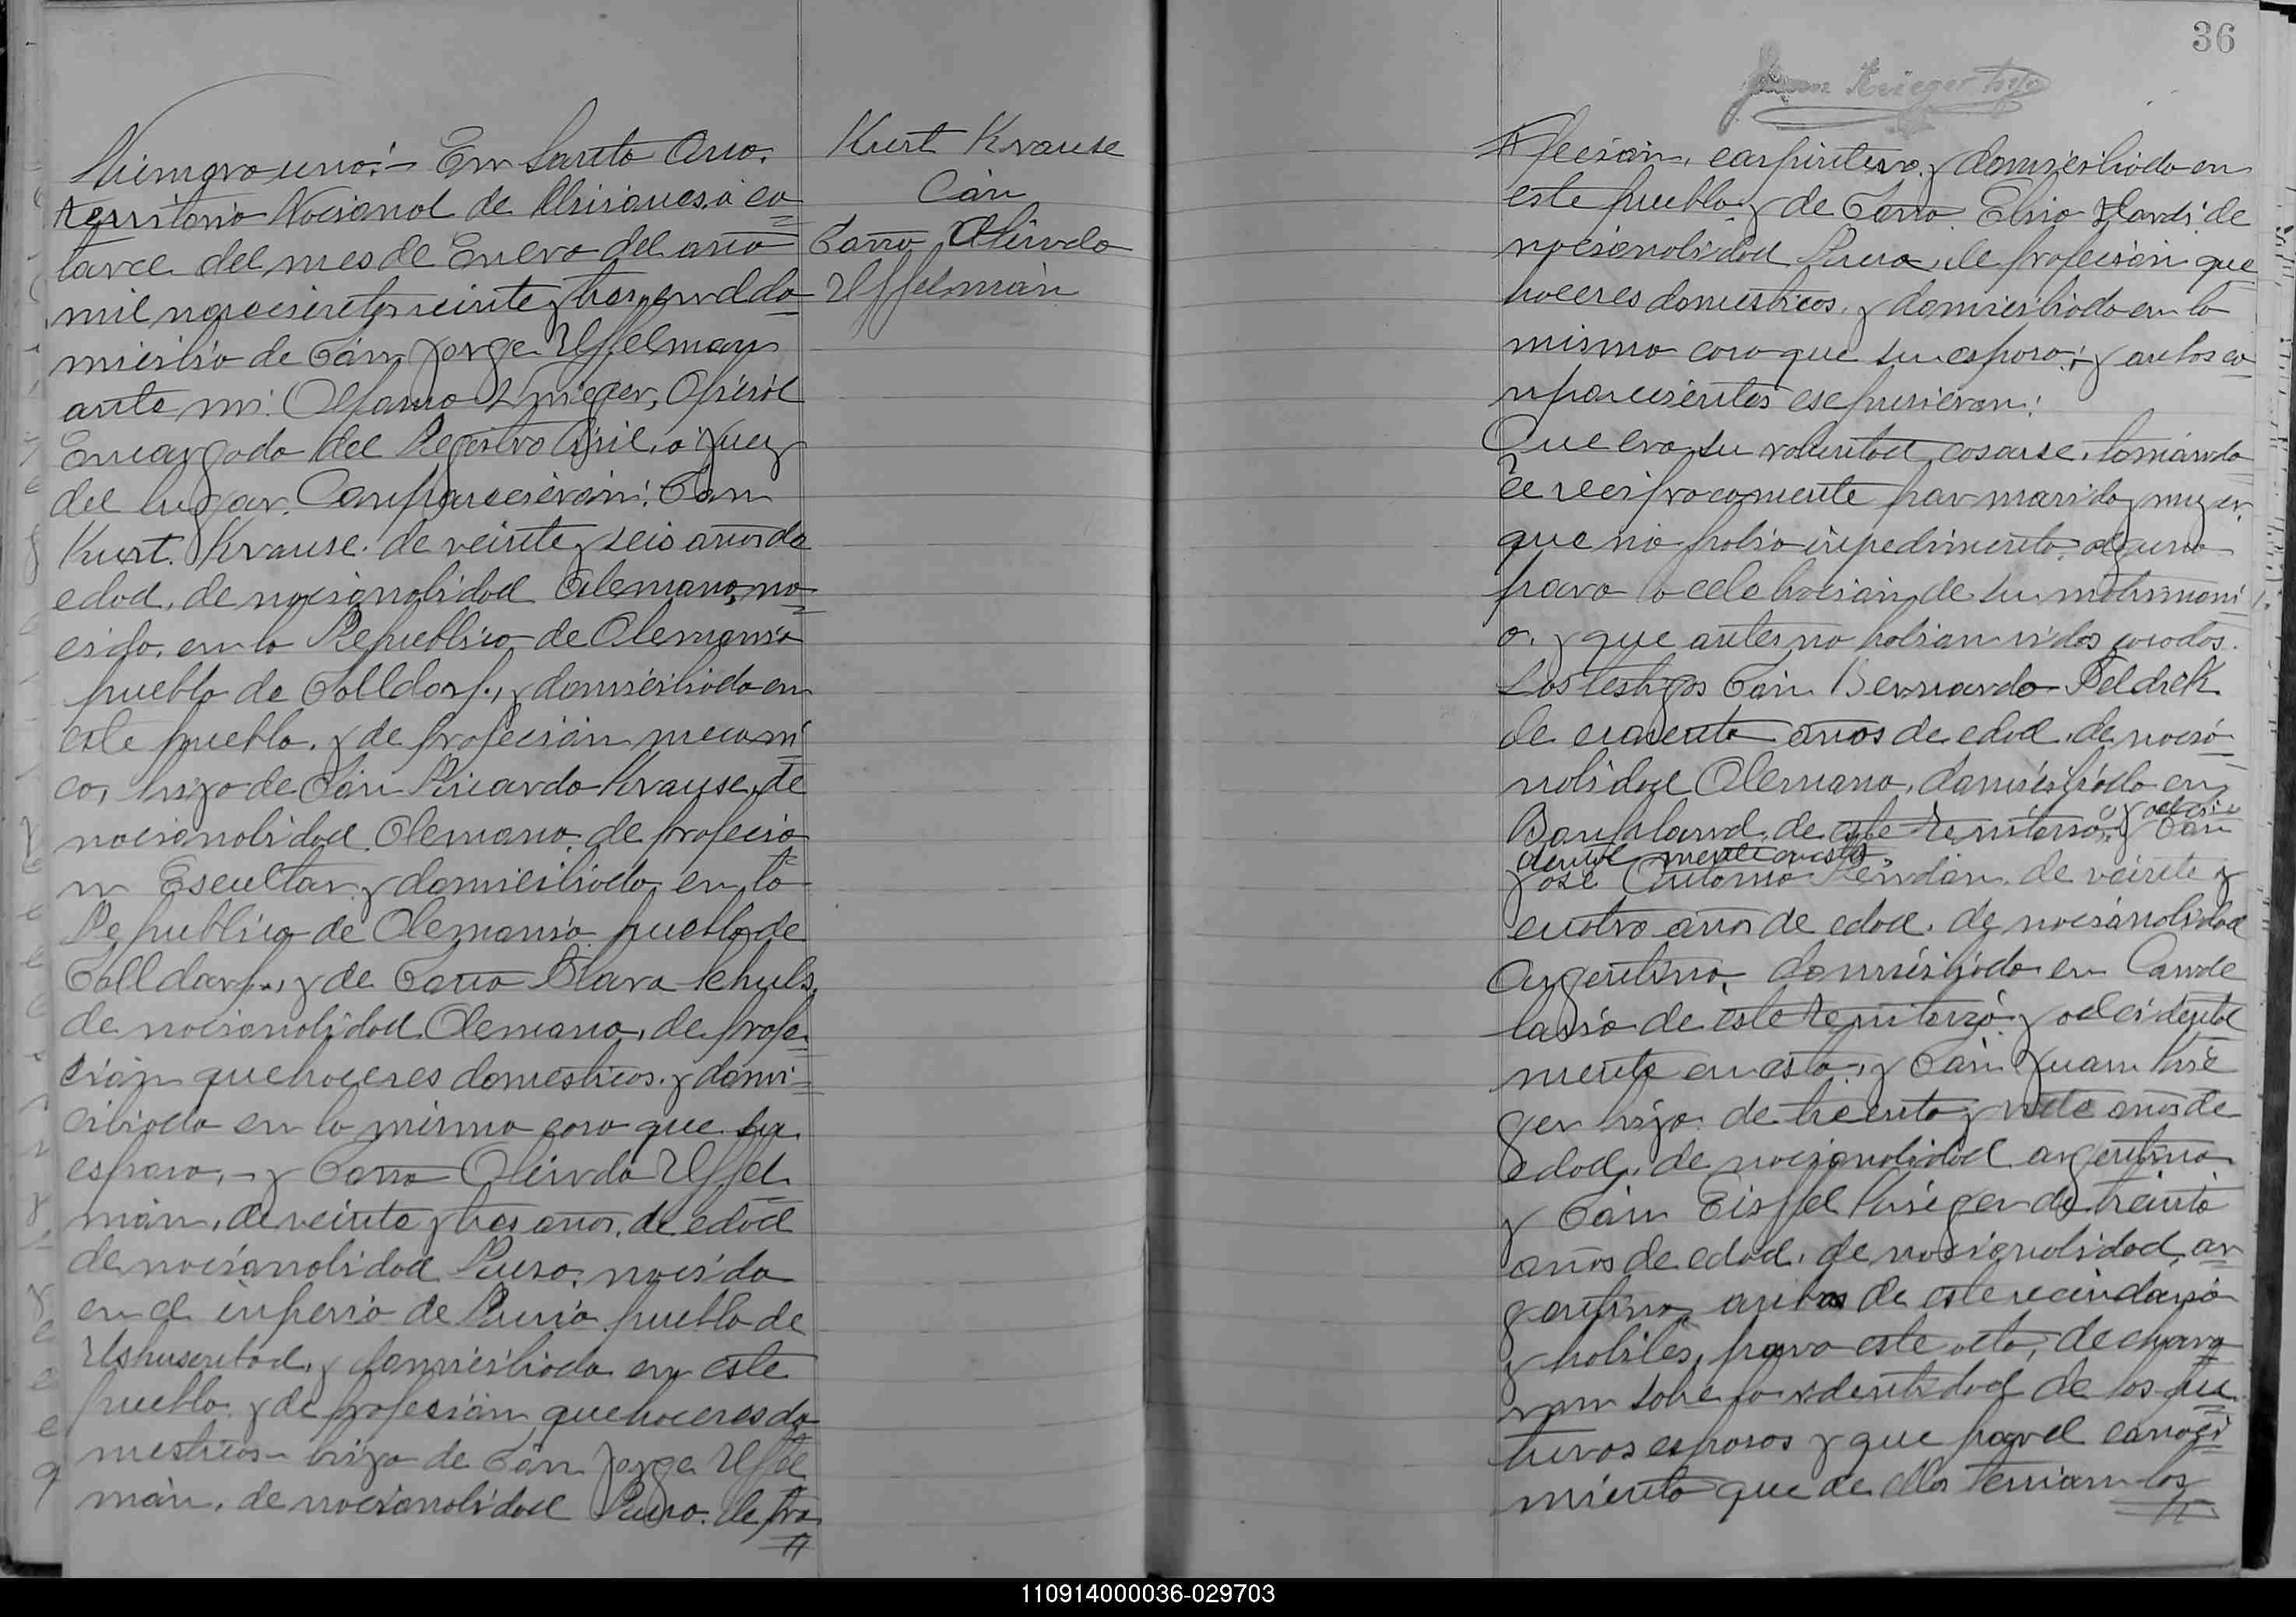 Numero uno:- En Santa Ana.
territorio Nacional de Misiones, á ca=
torce del mes de Enero del año
mil novecientos veinte y tres, en el do=
micilio de Dón Jorge Uffelman
ante mi Alfarno Krieger, Oficial
Encargado del Registro Civil, o Juez
del lugar. Comparecierón: Dón
Kurt. Krause. de veinte y seis años de
edad, de nacionalidad Alemana, na=
cido, en la Republica de Alemania
pueblo de Dolldorf., y domiciliado en
este pueblo. y de profecion mecani=
co, hijo de Dón Ricardo Krause, de
nacionalidad Alemana, de profecio=
n Escultor y domiciliado en la
Republica de Alemania pueblo de
Dolldorf., y de Doña Klara Schuls,
de nacionalidad Alemana, de profe=
ción quehaceres domesticos. y domi=
ciliada en la misma casa que su
esposo, - y Doña Olinda Uffel=
mán, de veinte y tres años, de edad
de nacionalidad Rusa, nacida
en el inperio de Rusia pueblo de
y domiciliada en este
pueblo. y de profeción, quehaceres do=
mesticos - hija de Dón Jorge Uffel
mán, de nacionalidad Ruso. de pro=
Kurt Krause
Cón
Doña Olinda
Uffelmán
36
Juan Krieger hijo
feción, carpintero. y domiciliado en
este pueblo. y de Doña Elsia Hardi. de
nacionalidad Rusa, de profeción que
haceres domesticos. y domiciliada en la
misma casa que su esposo; y anbos co=
nparecientes esepusieron:
Que era su voluntad casarse, tomándo=
ce reciprocamente por marido y mujer.
que no habia inpedimento alguno
para la celebracion de su matrimoni=
o. y que antes no habian sidos casados.
Los testigos Dón Bernardo Beldrek
de cuarenta años de edad, de nacio=
nalidad Alemana, domiciliado en
Bonpland, de este territorio, y acsi Dón
dental mente en esta
José Antonio Rendón. de veinte y
cuatro años de edad. de nacionalidad
Argentina, domiciliado en Cande
laria de este territorio y accidental
mente en esta, y Dón Juan Krie
ger hijo. de treinta y siete años de
edad, de nacionalidad argentina
y Dón Eiffel Krieger de treinta
años de edad, de nacionalidad ar=
gentina, anbos de este vecindario
y habiles, para este acto, declara=
ron sobre la identidad de los fu=
turos esposos y que por el conoci=
miento que de ellos tenian los